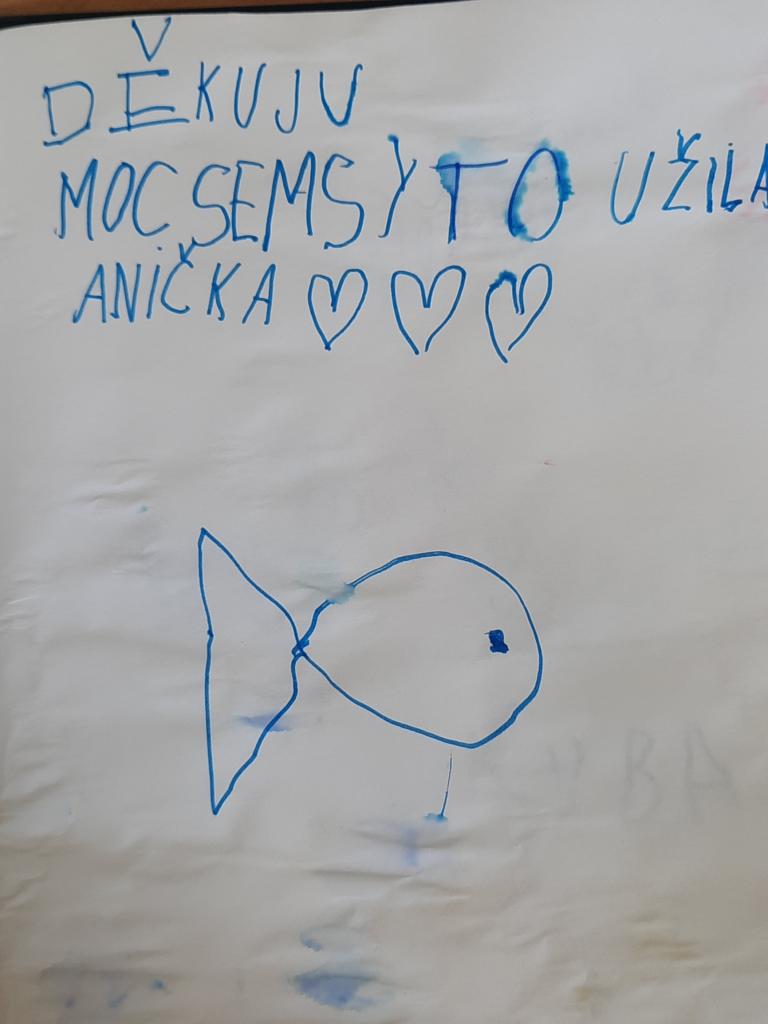 DĚKUJU
MOC SEM SY TO UŽILA
ANIČKA